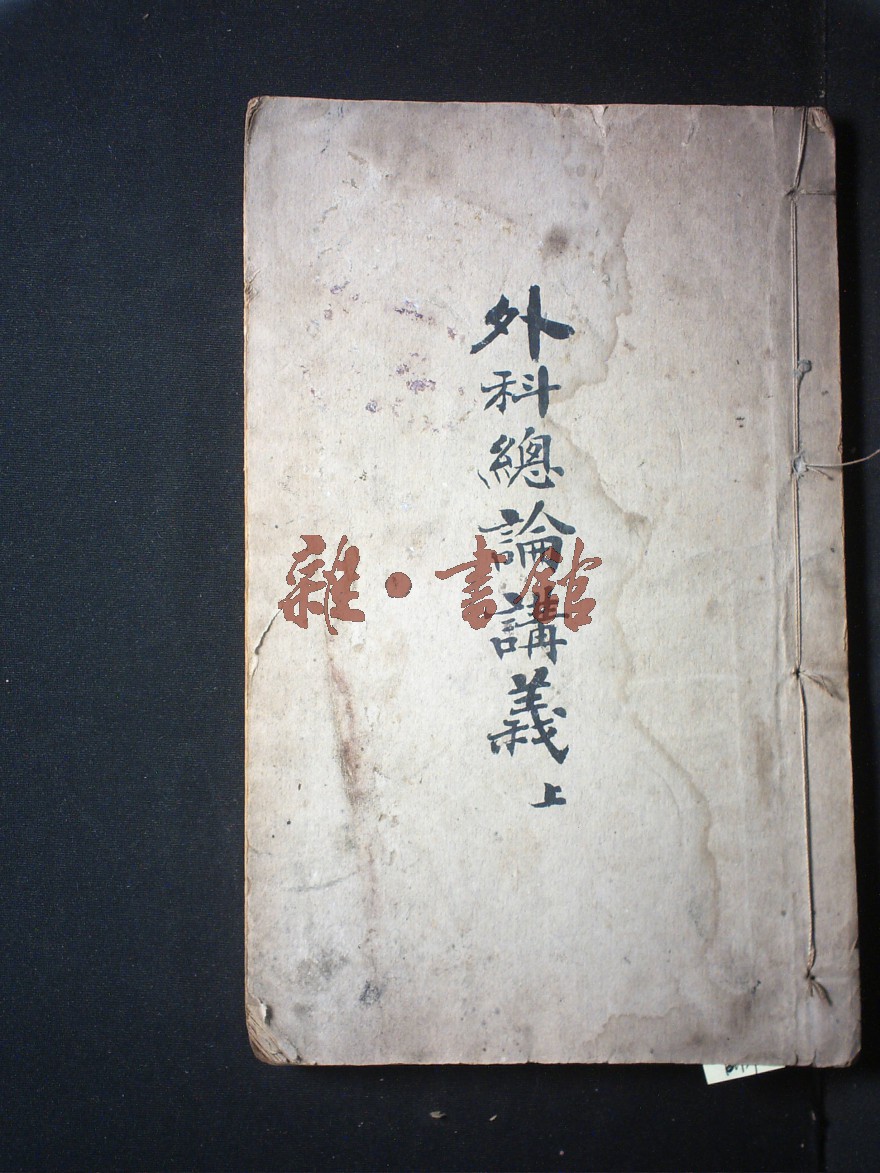 外科總論講義 上
雜·書館